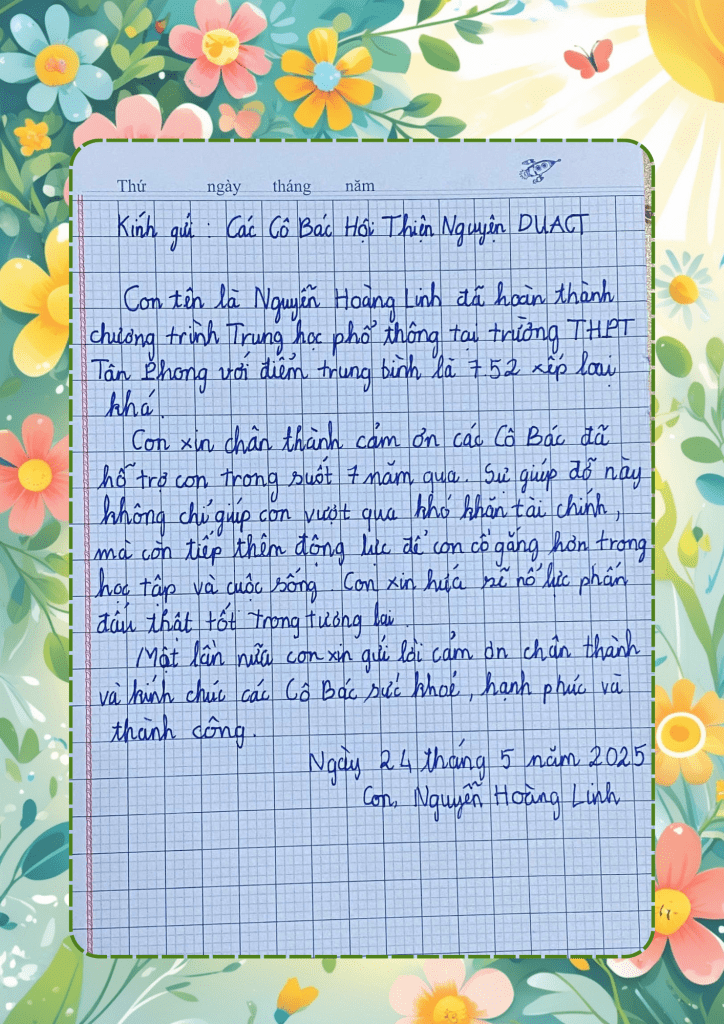 Thứ ngày tháng năm
Kính gửi : Các Cô Bác Hội Thiện Nguyện DUACT
Con tên là Nguyễn Hoàng Linh đã hoàn thành
chương trình Trung học phổ thông tại trường THPT
Tân Phong với điểm trung bình là 7.52 xếp loại
khá.
Con xin chân thành cảm ơn các Cô Bác đã
hỗ trợ con trong suốt 7 năm qua. Sự giúp đỡ này
không chỉ giúp con vượt qua khó khăn tài chính,
mà còn tiếp thêm động lực để con cố gắng hơn trong
học tập và cuộc sống. Con xin hứa sẽ nỗ lực phấn
đấu thật tốt trong tương lai.
Một lần nữa con xin gửi lời cảm ơn chân thành
và kính chúc các Cô Bác sức khoẻ, hạnh phúc và
thành công.
Ngày 24 tháng 5 năm 2025
Con, Nguyễn Hoàng Linh